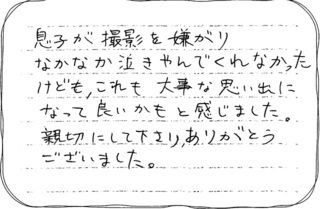 息子が撮影を嫌がり
なかなか泣きやんでくれなかった
けども、これも大事な思い出に
なって良いかもと感じました。
親切にして下さり、ありがとう
ございました。